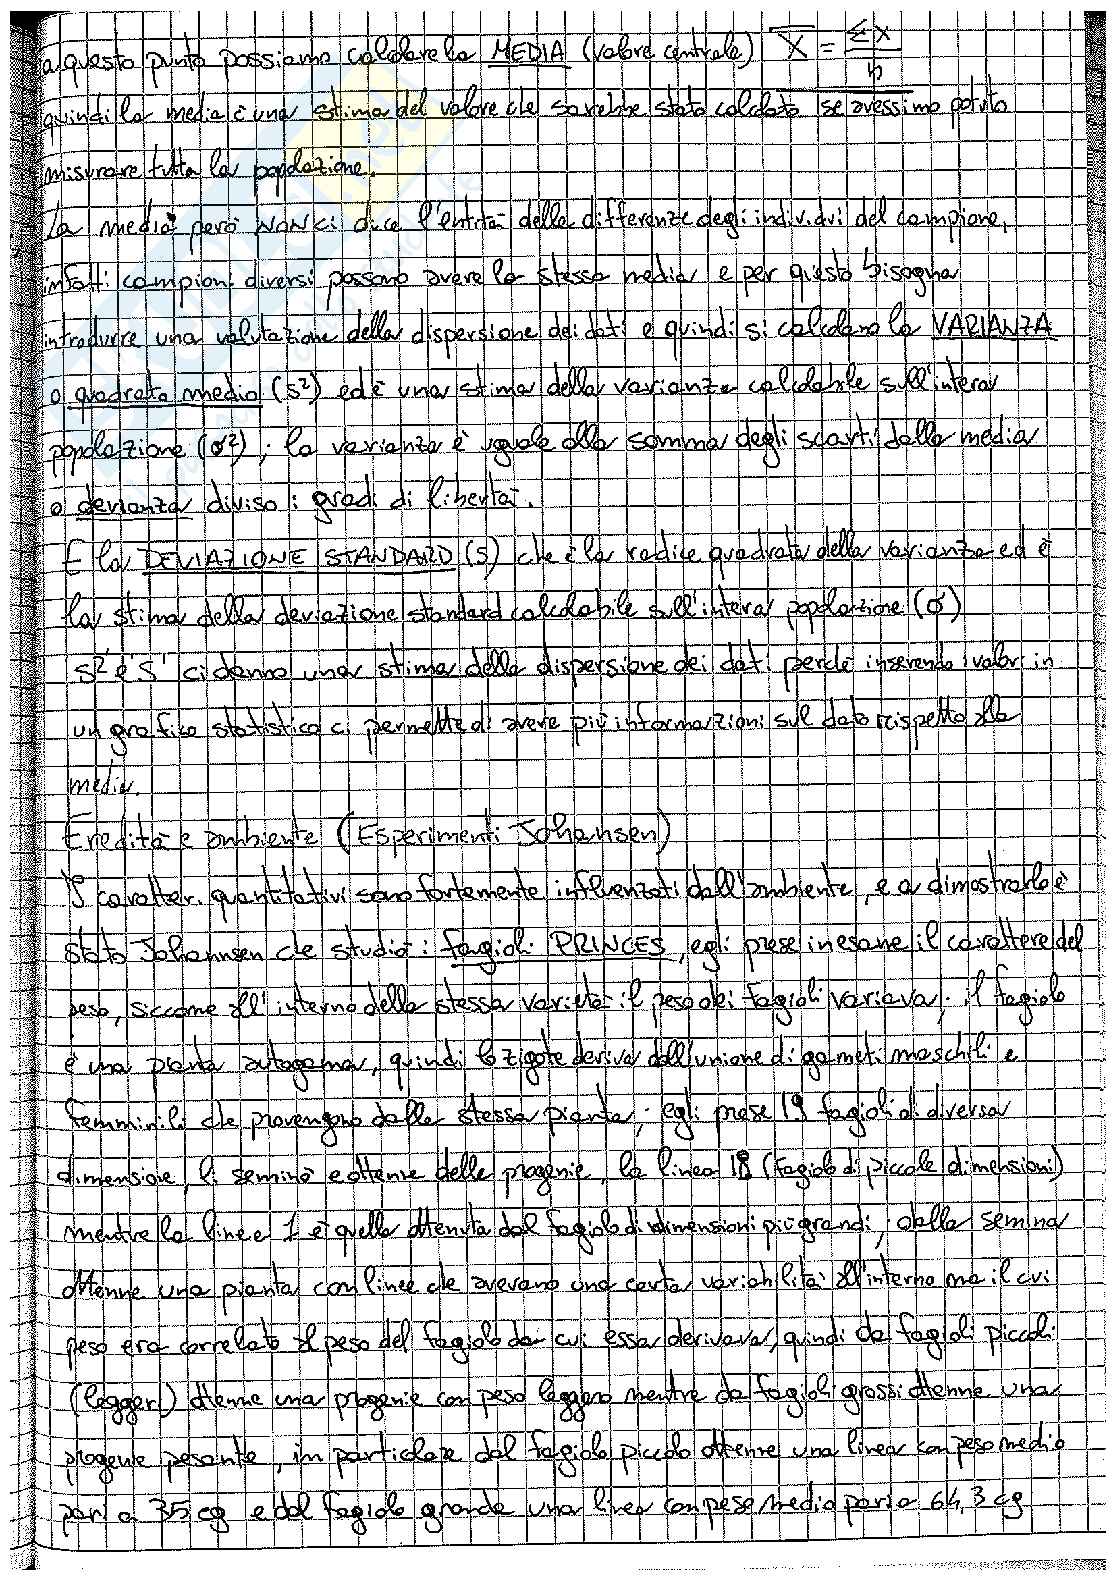 a questo punto possiamo calcolare la MEDIA (valore centrale) X̅ = Σx/n
quindi la media è una stima del valore che sarebbe stato calcolato se avessimo potuto
misurare tutta la popolazione.
La media però NON ci dice l'entità delle differenze degli individui del campione,
infatti campioni diversi possono avere la stessa media e per questo bisogna
introdurre una valutazione della dispersione dei dati e quindi si calcolano la VARIANZA
o quadrato medio (s²) ed è una stima della varianza calcolabile sull'intera
popolazione (σ²); la varianza è uguale alla somma degli scarti dalla media
o devianza diviso i gradi di libertà.
E la DEVIAZIONE STANDARD (s) che è la radice quadrata della varianza ed è
la stima della deviazione standard calcolabile sull'intera popolazione (σ)
s² e s ci danno una stima della dispersione dei dati perché inserendo i valori in
un grafico statistico ci permette di avere più informazioni sul dato rispetto alla
media.
Eredità e ambiente (Esperimenti Johansen)
I caratteri quantitativi sono fortemente influenzati dall'ambiente, e a dimostrarlo è
stato Johannsen che studiò i fagioli PRINCES, egli prese in esame il carattere del
peso, siccome all'interno della stessa varietà il peso dei fagioli variava; il fagiolo
è una pianta autogama, quindi lo zigote deriva dall'unione di gameti maschili e
femminili che provengono dalla stessa pianta; egli prese 19 fagioli di diversa
dimensione, li seminò e ottenne delle progenie, la linea 18 (fagiolo di piccole dimensioni)
mentre la linea 1 è quella ottenuta dal fagiolo di dimensioni più grandi; dalla semina
ottenne una pianta con linee che avevano una certa variabilità all'interno ma il cui
peso era correlato al peso del fagiolo da cui essa derivava, quindi da fagioli piccoli
(leggeri) ottenne una progenie con peso leggero mentre da fagioli grossi ottenne una
progenie pesante, in particolare dal fagiolo piccolo ottenne una linea con peso medio
pari a 35 cg e dal fagiolo grande una linea con peso medio pari a 64,3 cg